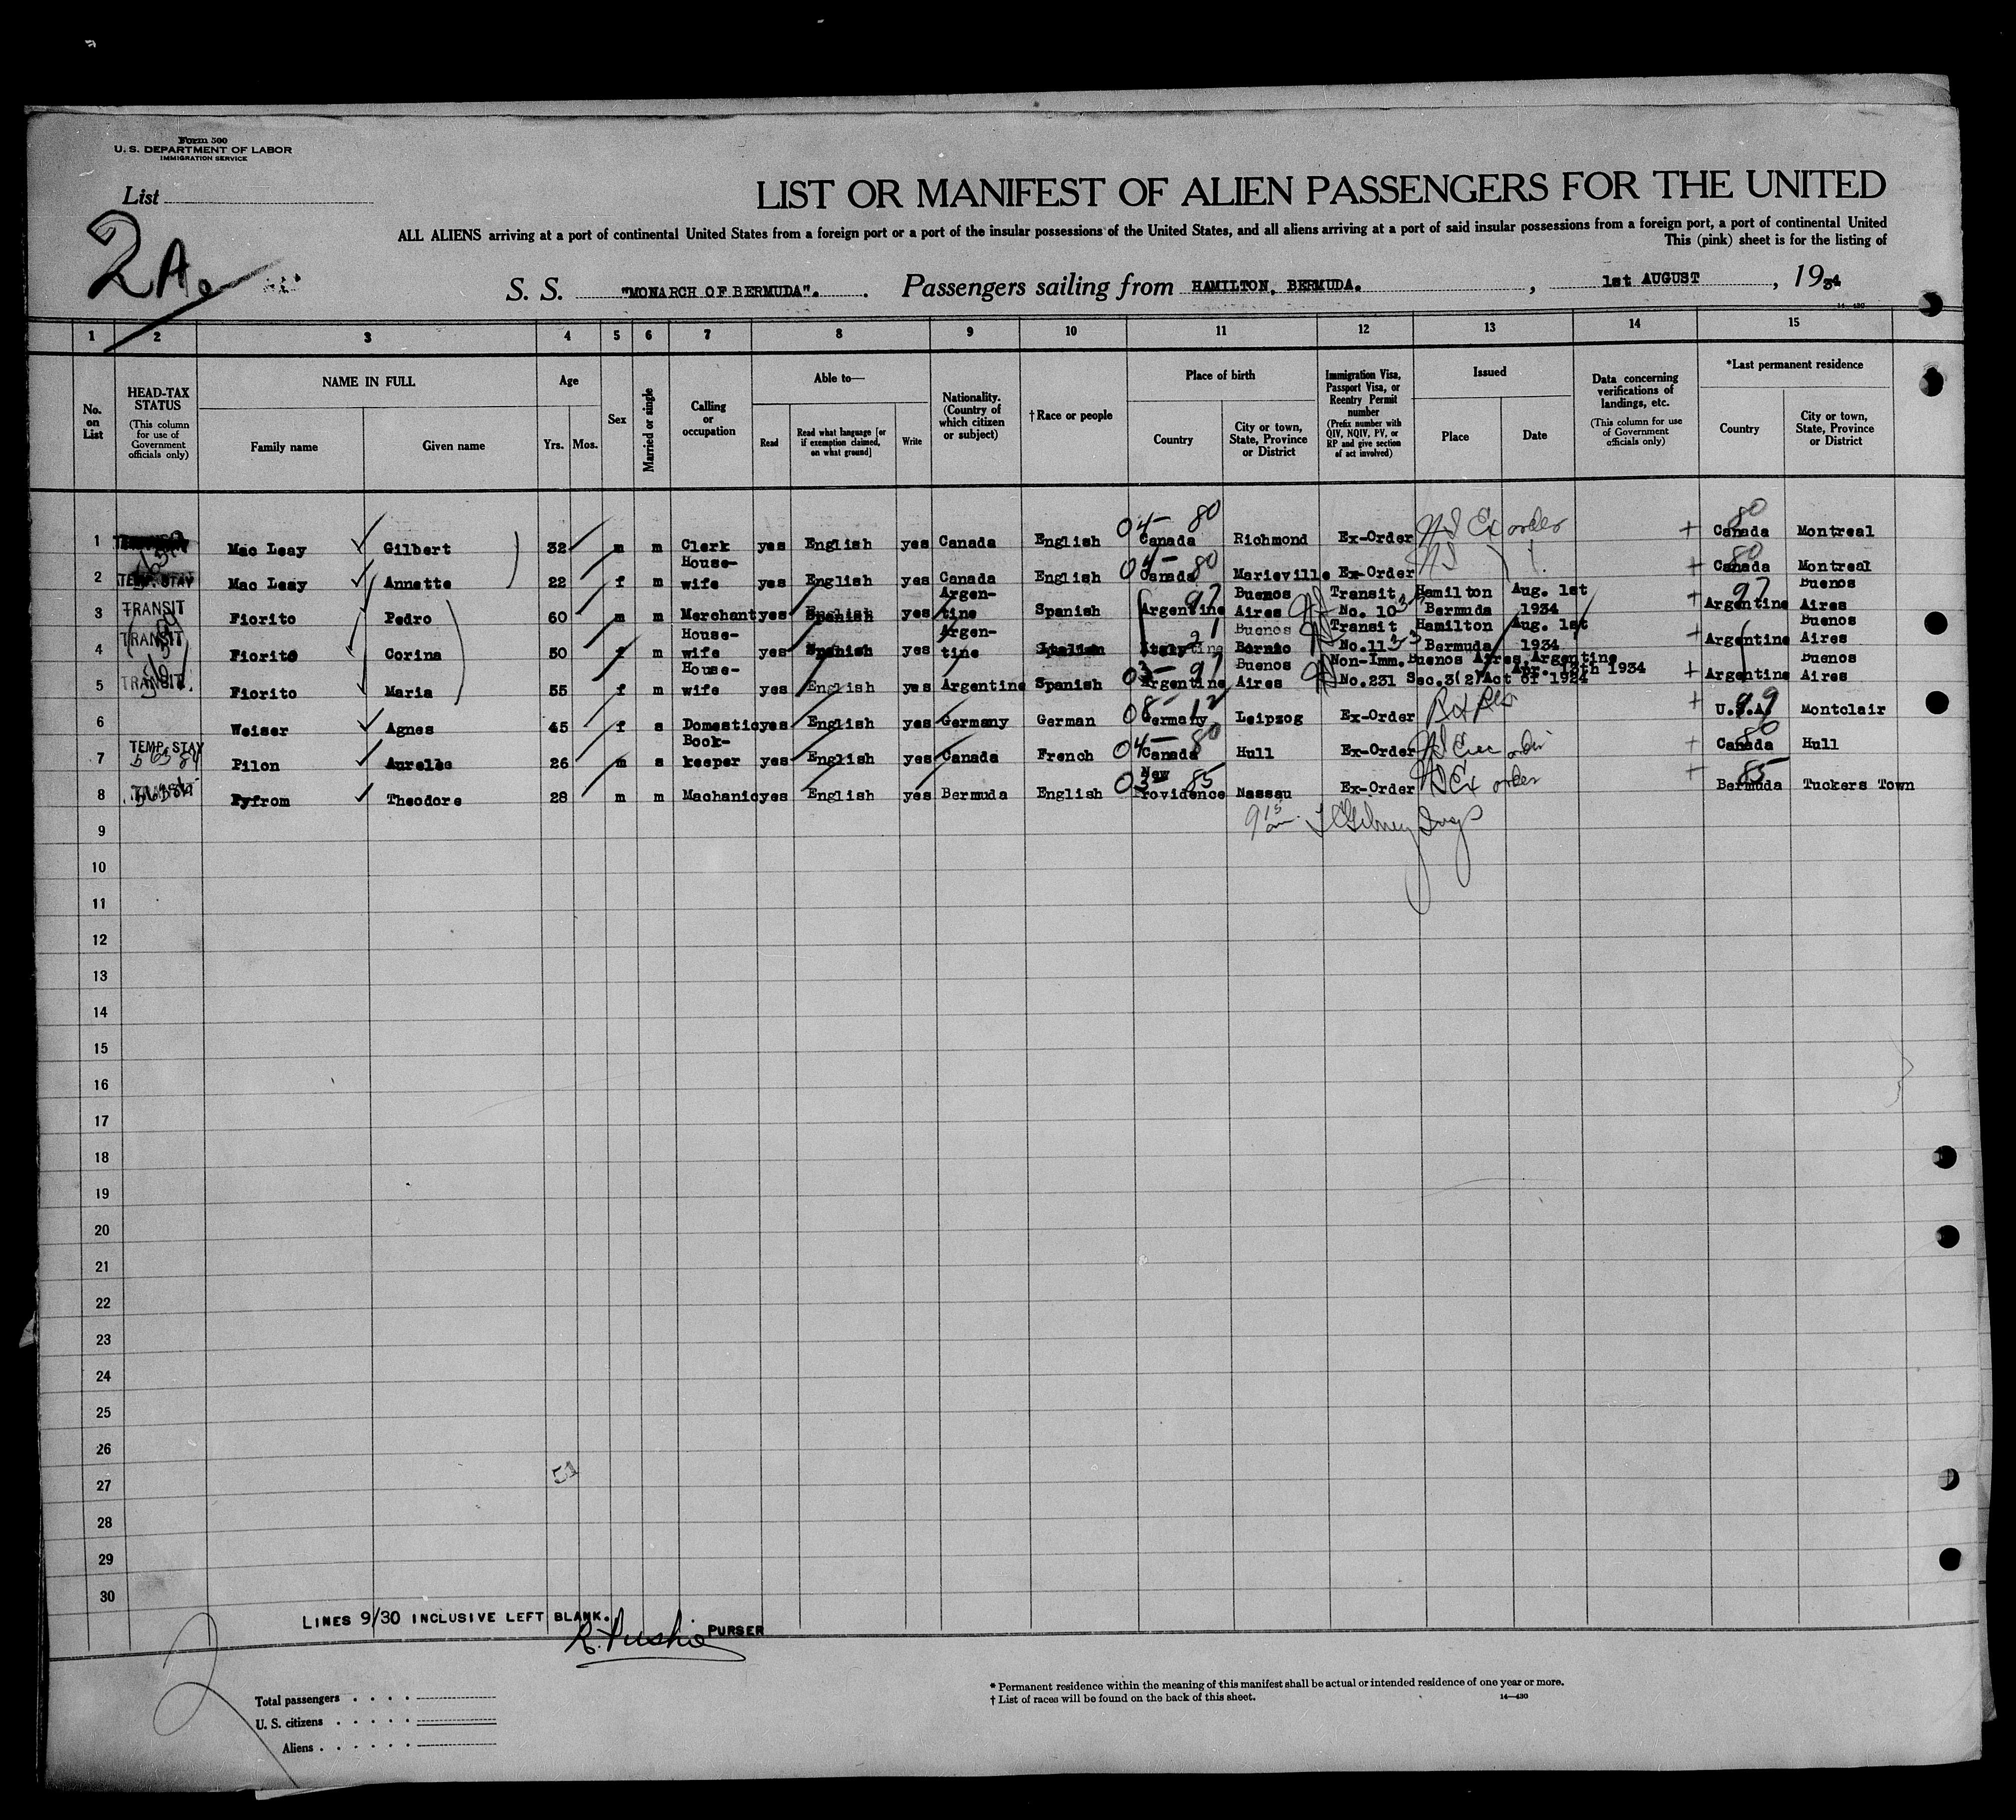 Form 500
U. S. DEPARTMENT OF LABOR
IMMIGRATION SERVICE
List
2A
LIST OR MANIFEST OF ALIEN PASSENGERS FOR THE UNITED
ALL ALIENS arriving at a port of continental United States from a foreign port or a port of the insular possessions of the United States, and all aliens arriving at a port of said insular possessions from a foreign port, a port of continental United
This (pink) sheet is for the listing of
S. S. "MONARCH OF BERMUDA". Passengers sailing from HAMILTON, BERMUDA. , 1st AUGUST , 1934
14—430
1 2 3 4 5 6 7 8 9 10 11 12 13 14 15
No. on List
HEAD-TAX STATUS (This column for use of Government officials only)
NAME IN FULL
Family name Given name
Age
Yrs. Mos.
Sex
Married or single
Calling or occupation
Able to—
Read Read what language [or if exemption claimed, on what ground] Write
Nationality. (Country of which citizen or subject)
†Race or people
Place of birth
Country City or town, State, Province or District
Immigration Visa, Passport Visa, or Reentry Permit number (Prefix number with QIV, NQIV, PV, or RP and give section of act involved)
Issued
Place Date
Data concerning verifications of landings, etc. (This column for use of Government officials only)
*Last permanent residence
Country City or town, State, Province or District
1 Mac Leay Gilbert 32 m m Clerk yes English yes Canada English 04- 80 Canada Richmond Ex-Order Ex order + 80 Canada Montreal
2 TEMP. STAY Mac Leay Annette 22 f m House-wife yes English yes Canada English 04- 80 Canada Marieville Ex-Order + 80 Canada Montreal
3 TRANSIT Fiorito Pedro 60 m m Merchant yes Spanish yes Argen-tine Spanish 97 Argentine Buenos Aires Transit No. 10 Hamilton Bermuda Aug. 1st 1934 + 97 Argentine Buenos Aires
4 TRANSIT Fiorito Corina 50 f m House-wife yes Spanish yes Argen-tine Italian Italy Bornio Transit No.11 Hamilton Bermuda Aug. 1st 1934 + Argentine Buenos Aires
5 TRANSIT Fiorito Maria 55 f m House-wife yes English yes Argentine Spanish 03- 97 Argentine Buenos Aires Non-Imm. Buenos Aires, Argentine No.231 Sec.3(2)Act of 1924 Apr. 13th 1934 + Argentine Buenos Aires
6 Weiser Agnes 45 f s Domestic yes English yes Germany German 08- 12 Germany Leipzog Ex-Order + 99 U.S.A. Montclair
7 TEMP. STAY Pilon Aurelle 26 m s Book-keeper yes English yes Canada French 04- 80 Canada Hull Ex-Order Exec order + 80 Canada Hull
8 Pyfrom Theodore 28 m m Machanic yes English yes Bermuda English 03- 85 New Providence Nassau Ex-Order Ex order + 85 Bermuda Tuckers Town
9
10
11
12
13
14
15
16
17
18
19
20
21
22
23
24
25
26
27
28
29
30
LINES 9/30 INCLUSIVE LEFT BLANK.
PURSER
Total passengers
U. S. citizens
Aliens
* Permanent residence within the meaning of this manifest shall be actual or intended residence of one year or more.
† List of races will be found on the back of this sheet.
14—430